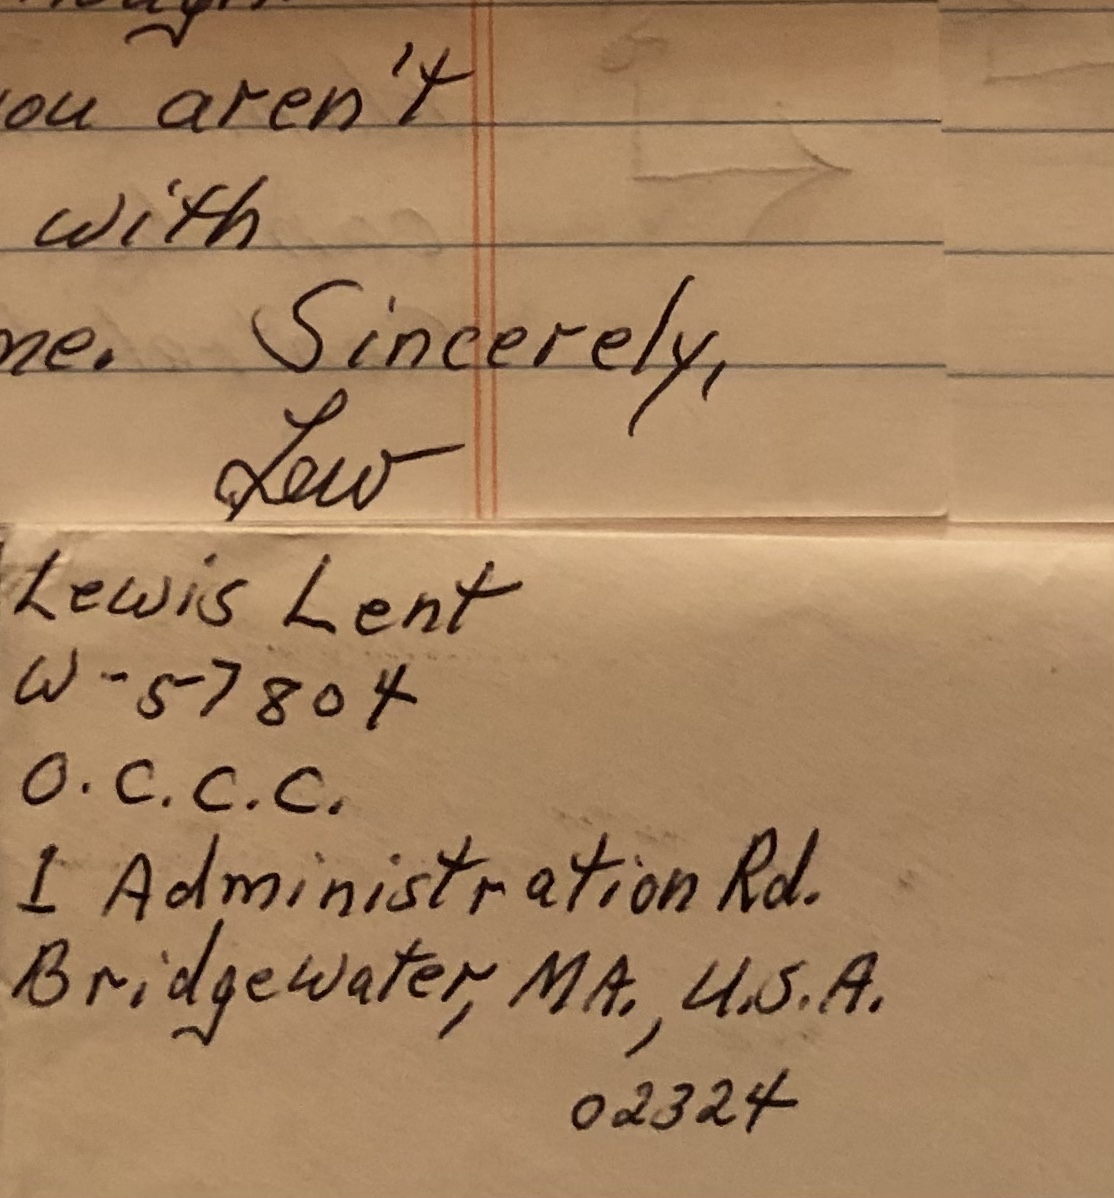 you aren't
with
me. Sincerely,
Lew
Lewis Lent
W-57804
O.C.C.C.
1 Administration Rd.
Bridgewater, MA., U.S.A.
02324